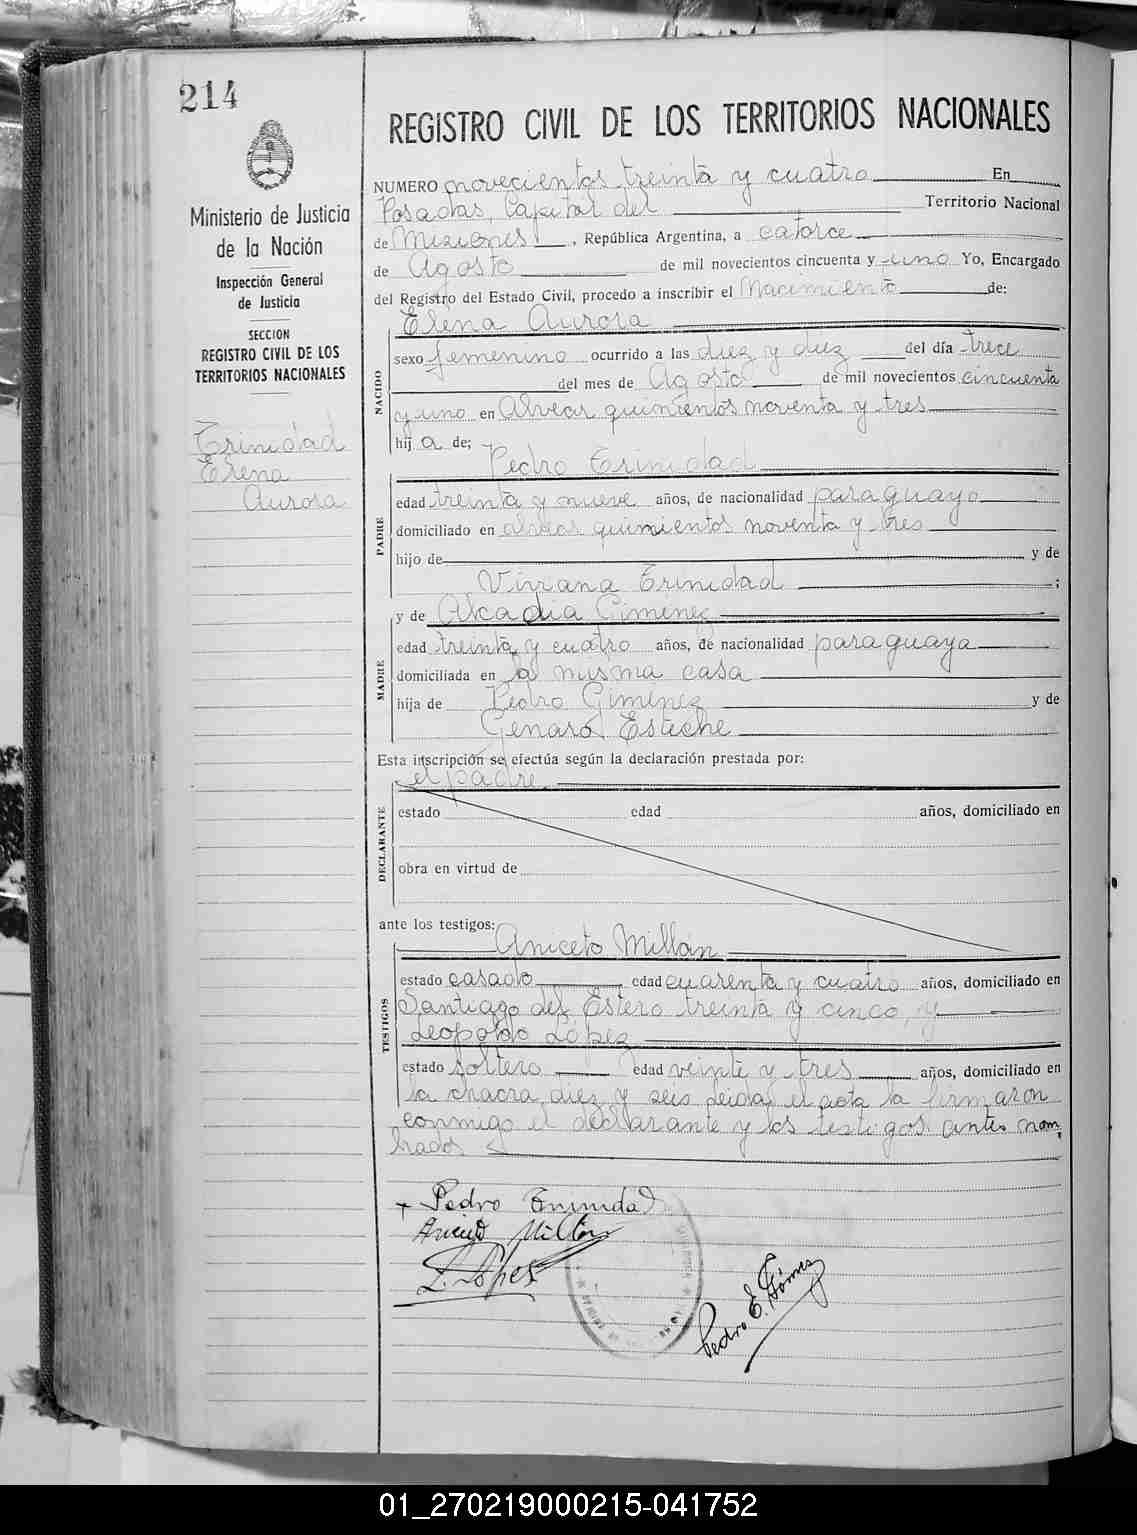 214
Ministerio de Justicia
de la Nación
Inspección General
de Justicia
SECCION
REGISTRO CIVIL DE LOS
TERRITORIOS NACIONALES
Trinidad
Elena
Aurora
REGISTRO CIVIL DE LOS TERRITORIOS NACIONALES
NUMERO novecientos treinta y cuatro En
Posadas, Capital del Territorio Nacional
de Misiones, República Argentina, a catorce
de Agosto de mil novecientos cincuenta y uno Yo, Encargado
del Registro del Estado Civil, procedo a inscribir el Nacimiento de:
Elena Aurora
NACIDO
sexo femenino ocurrido a las diez y diez del día trece
del mes de Agosto de mil novecientos cincuenta
y uno en Alvear quinientos noventa y tres
hij a de;
Pedro Trinidad
PADRE
edad treinta y nueve años, de nacionalidad paraguayo
domiciliado en alvear quinientos noventa y tres
hijo de y de
Viviana Trinidad ;
y de Alcadia Gimenez
MADRE
edad treinta y cuatro años, de nacionalidad paraguaya
domiciliada en la misma casa
hija de Pedro Giménez y de
Genara Esteche
Esta inscripción se efectúa según la declaración prestada por:
el padre
DECLARANTE
estado edad años, domiciliado en
obra en virtud de
ante los testigos:
Aniceto Millán
TESTIGOS
estado casado edad cuarenta y cuatro años, domiciliado en
Santiago del Estero treinta y cinco, y
Leopoldo López
estado soltero edad veinte y tres años, domiciliado en
la chacra diez y seis leida el acta la firmaron
conmigo el declarante y los testigos antes nom
brados
Pedro Trinidad
Aniceto Millán
L. López
Pedro E. Gómez
01_270219000215-041752